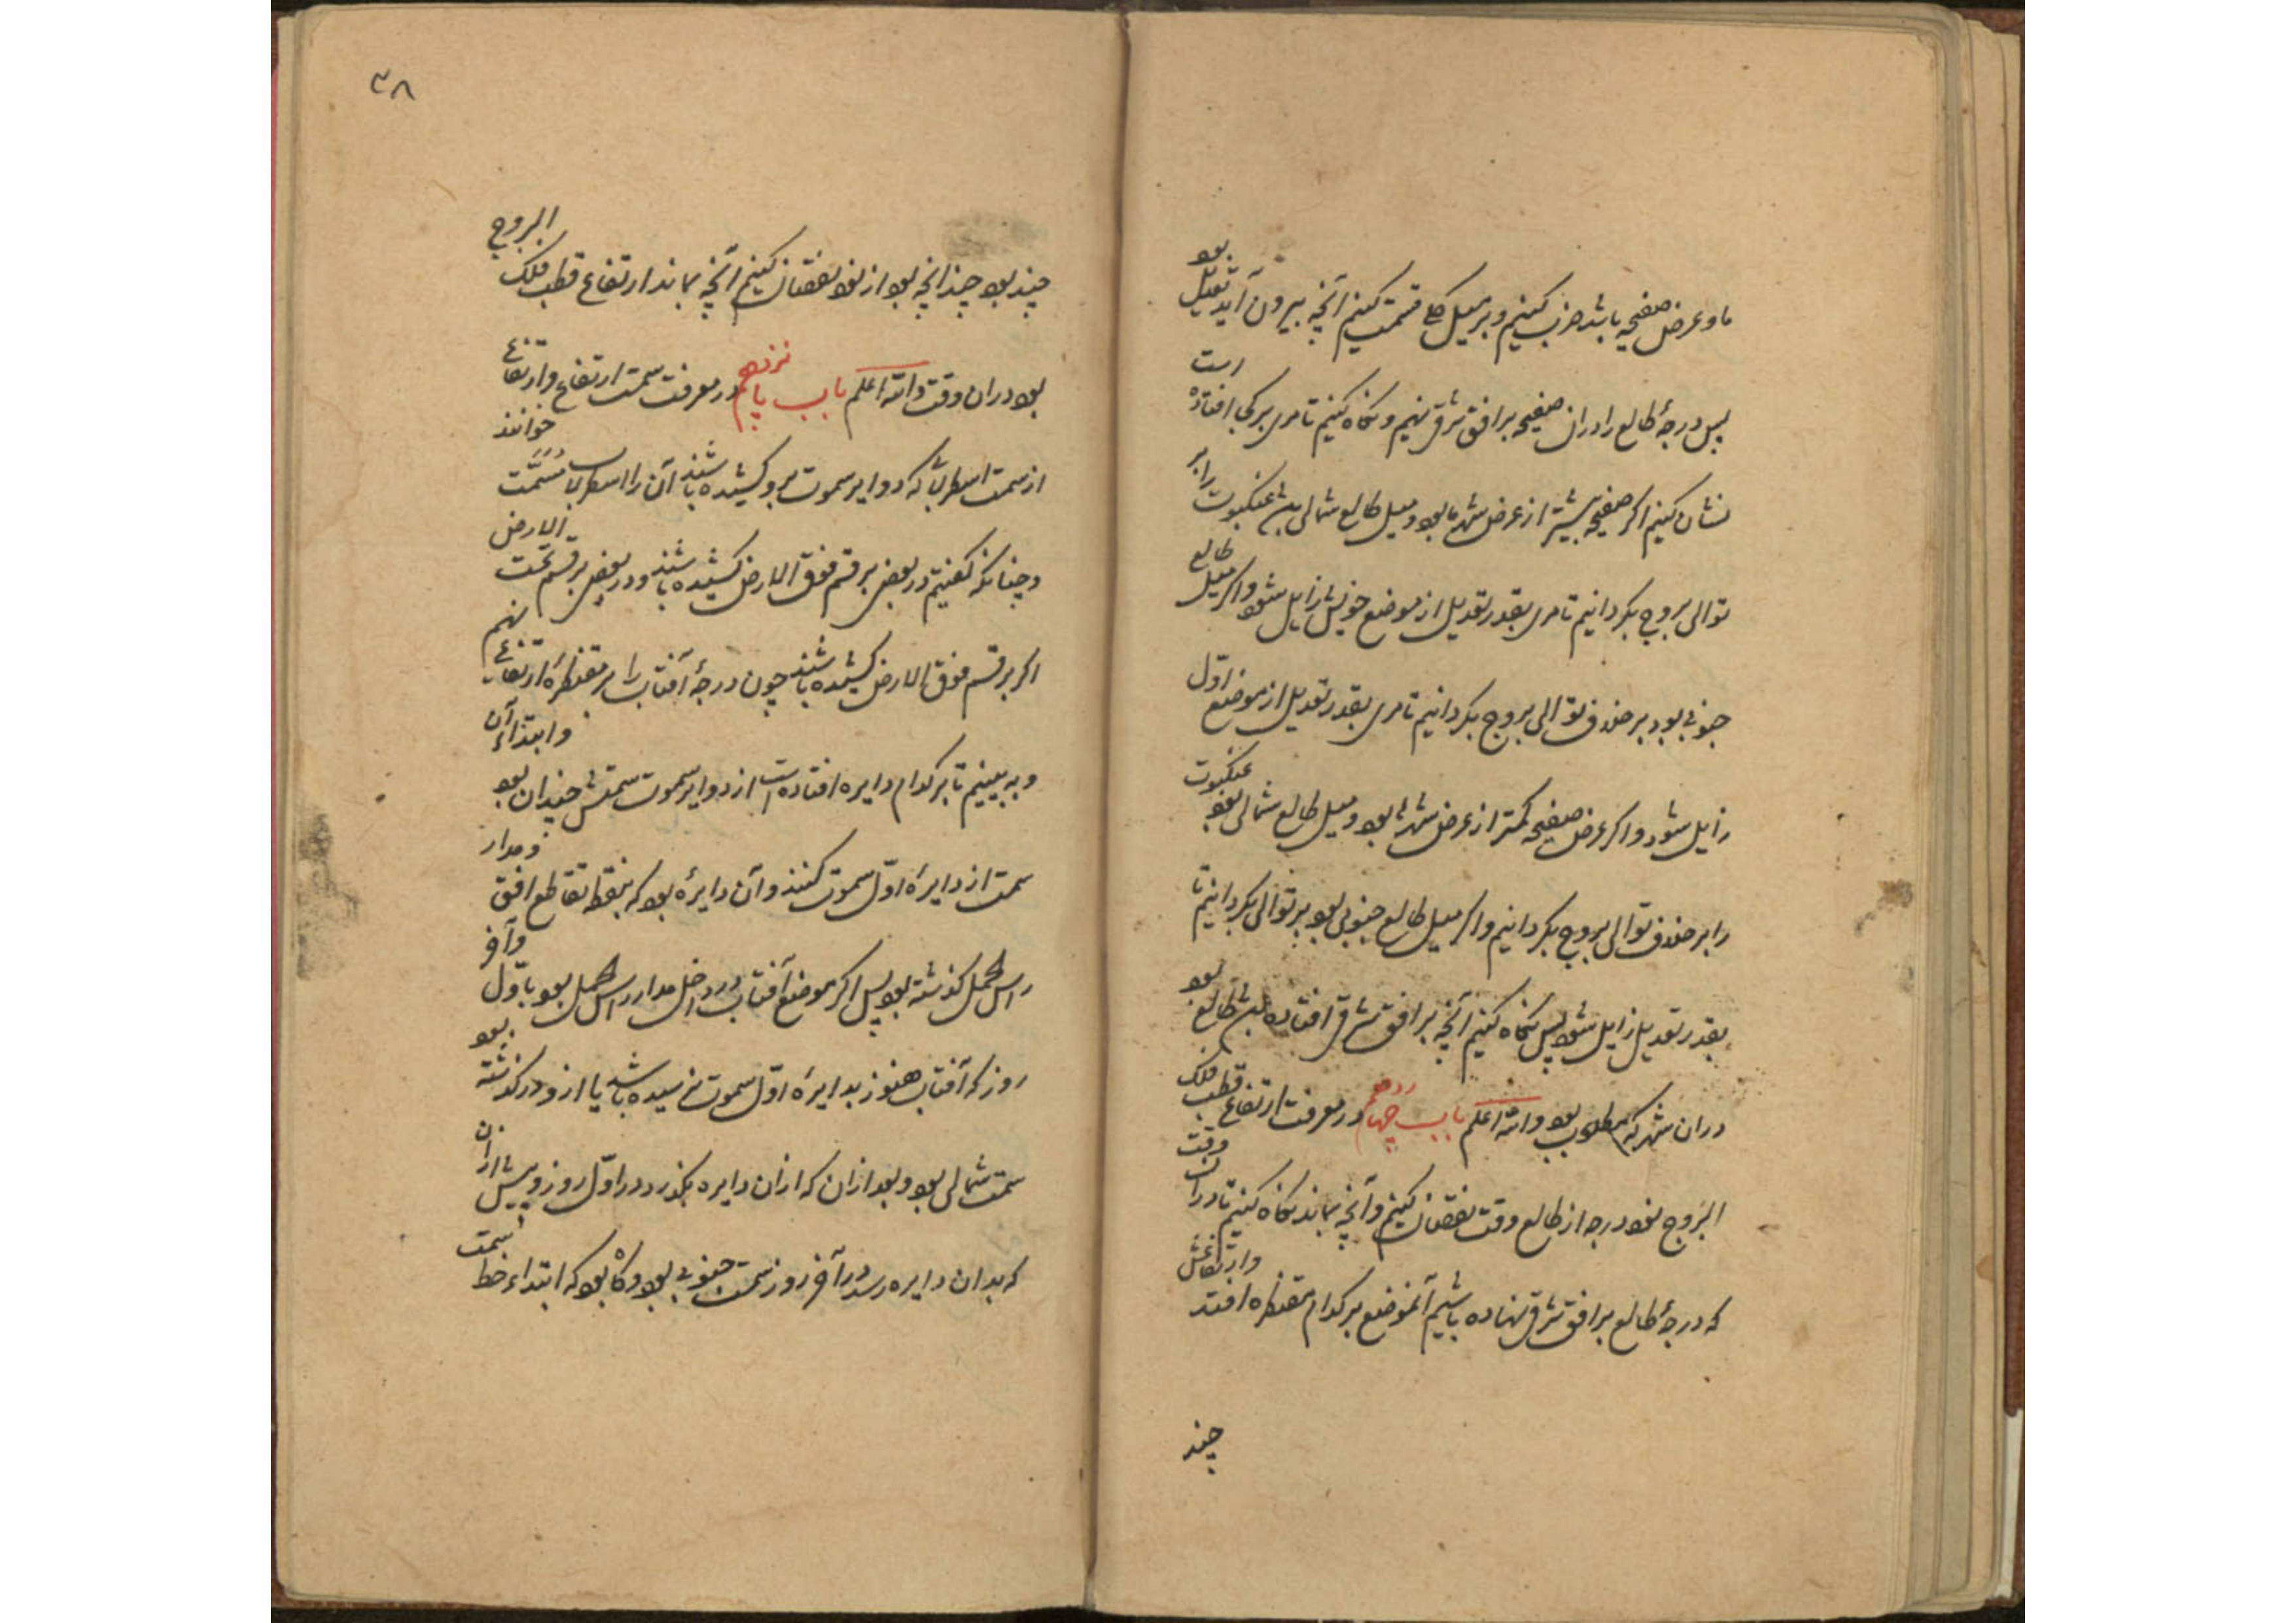 ما و عرض صفیحه باشد ضرب کنیم و بر میل کلی قسمت کنیم آنچه بیرون آید تعدیل بود
پس درجهٔ طالع را در آن صفیحه بر افق شرق نهیم و نگاه کنیم تا مری بر کجا افتاده است
نشان کنیم اگر صفیحه بیشتر از عرض شهر ما بود و میل طالع شمالی باشد عنکبوت را بر
توالی بروج بگردانیم تا مری بقدر تعدیل از موضع خویش زایل شود و اگر میل طالع
جنوبی بود بر خلاف توالی بروج بگردانیم تا مری بقدر تعدیل از موضع اوّل
زایل شود و اگر عرض صفیحه کمتر از عرض شهر ما بود و میل طالع شمالی بود عنکبوت
را بر خلاف توالی بروج بگردانیم و اگر میل طالع جنوبی بود بر توالی بگردانیم تا
بقدر تعدیل زایل شود پس نگاه کنیم آنچه بر افق شرق افتاده باشد طالع بود
در آن شهر که مطلوب بود واللّه اعلم باب چهاردهم در معرفت ارتفاع قطب فلک
البروج نود درجه از طالع وقت نقصان کنیم و آنچه بماند نگاه کنیم تا در آن وقت
که درجهٔ طالع بر افق شرق نهاده باشیم آنموضع بر کدام مقنطره افتد وارتفاعش
چند
۳۸
چند بود چندانچه بود از نود نقصان کنیم آنچه بماند ارتفاع قطب فلک البروج
بود در آن وقت واللّه اعلم باب پانزدهم در معرفت سمت ارتفاع و ارتفاع
از سمت اسطرلابی که دوایر سموت برو کشیده باشند آن را اسطرلاب مُسَمَّت خوانند
و چنانکه گفتیم در بعضی بر قسم فوق الارض کشیده باشند و در بعضی بر قسم تحت الارض
اگر بر قسم فوق الارض کشیده باشند چون درجهٔ آفتاب را بر مقنطرهٔ ارتفاع نهیم
و به بینیم تا بر کدام دایره افتاده است از دوایر سموت سمتش چندان بود وابتداء آن
سمت از دایرهٔ اوّل سموت کنند و آن دایرهٔ بود که بنقطهٔ تقاطع افق و مدار
راس الحمل گذشته بود پس اگر موضع آفتاب در داخل مدار راس الحمل بود باوّل و آخر
روز که آفتاب هنوز بدایرهٔ اوّل سموت نرسیده باشد یا ازو در گذشته بود
سمت شمالی بود و بعد از آن که از آن دایره بگذرد در اوّل روز و پیش از آن
که بدان دایره رسد در آخر روز سمت جنوبی بود و گاه بود که ابتداء خط سمت